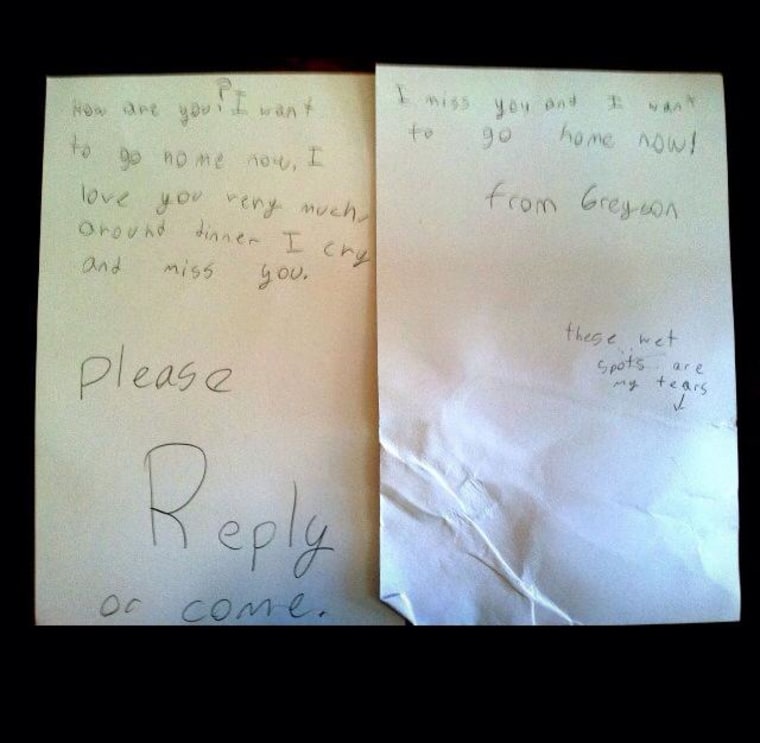 How are you? I want
to go home now, I
love you very much,
around dinner I cry
and miss you.
please
Reply
or come.
I miss you and I want
to go home now!
from Greyson
these wet
spots are
my tears